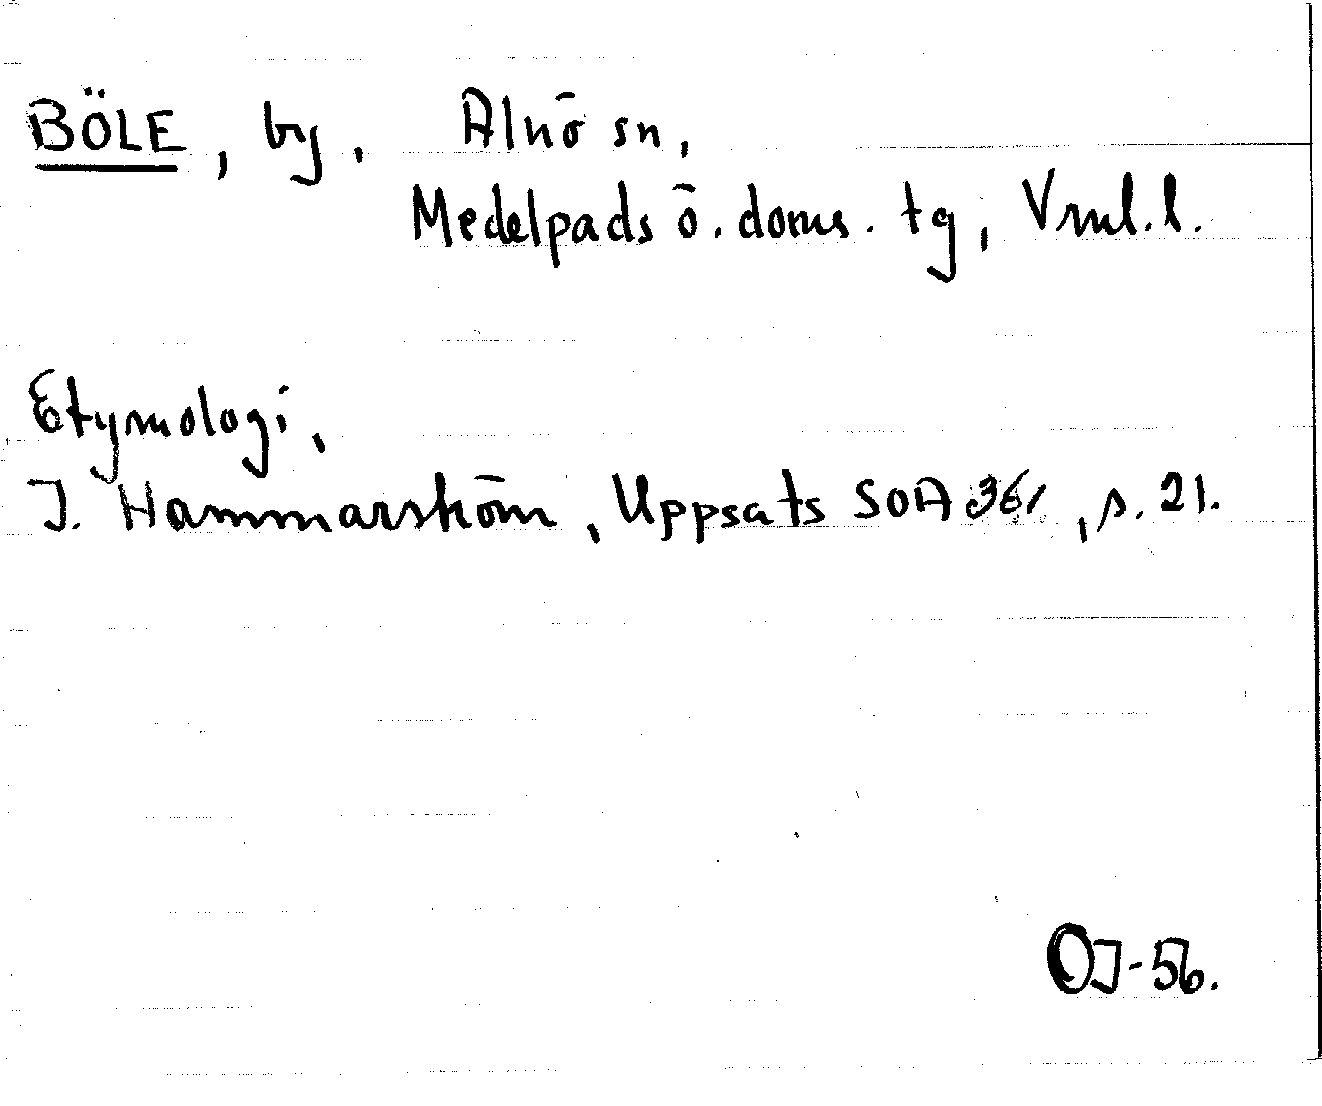 BÖLE, by, Alnö sn,
Medelpads ö. doms. tg, Vnl. l.
Etymologi,
I. Hammarström, Uppsats SOA 361, s. 21.
OJ-56.